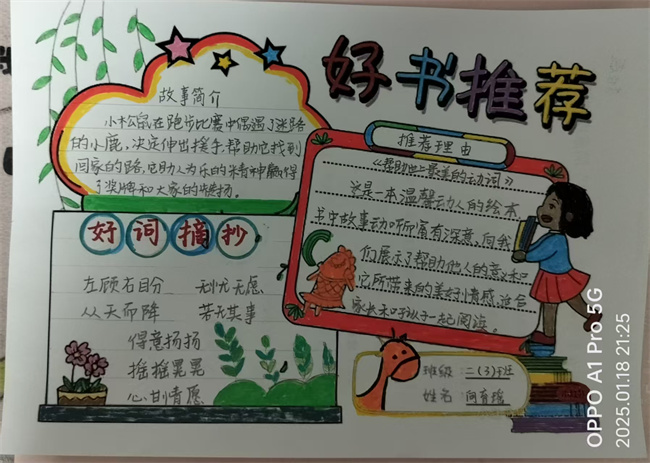 好书推荐
故事简介
小松鼠在跑步比赛中偶遇了迷路
的小鹿,决定伸出援手帮助它找到
回家的路,它助人为乐的精神赢得
了奖牌和大家的赞扬。
推荐理由
《帮助世上最美的动词》
这是一本温馨动人的绘本
书中故事动听富有深意,向我
们展示了帮助他人的意义和
它所带来的美好情感,适合
家长和孩子一起阅读。
好词摘抄
左顾右盼 无忧无虑
从天而降 若无其事
得意扬扬
摇摇晃晃
心甘情愿
班级:二(3)班
姓名:
OPPO A1 Pro 5G
2025.01.18 21:25